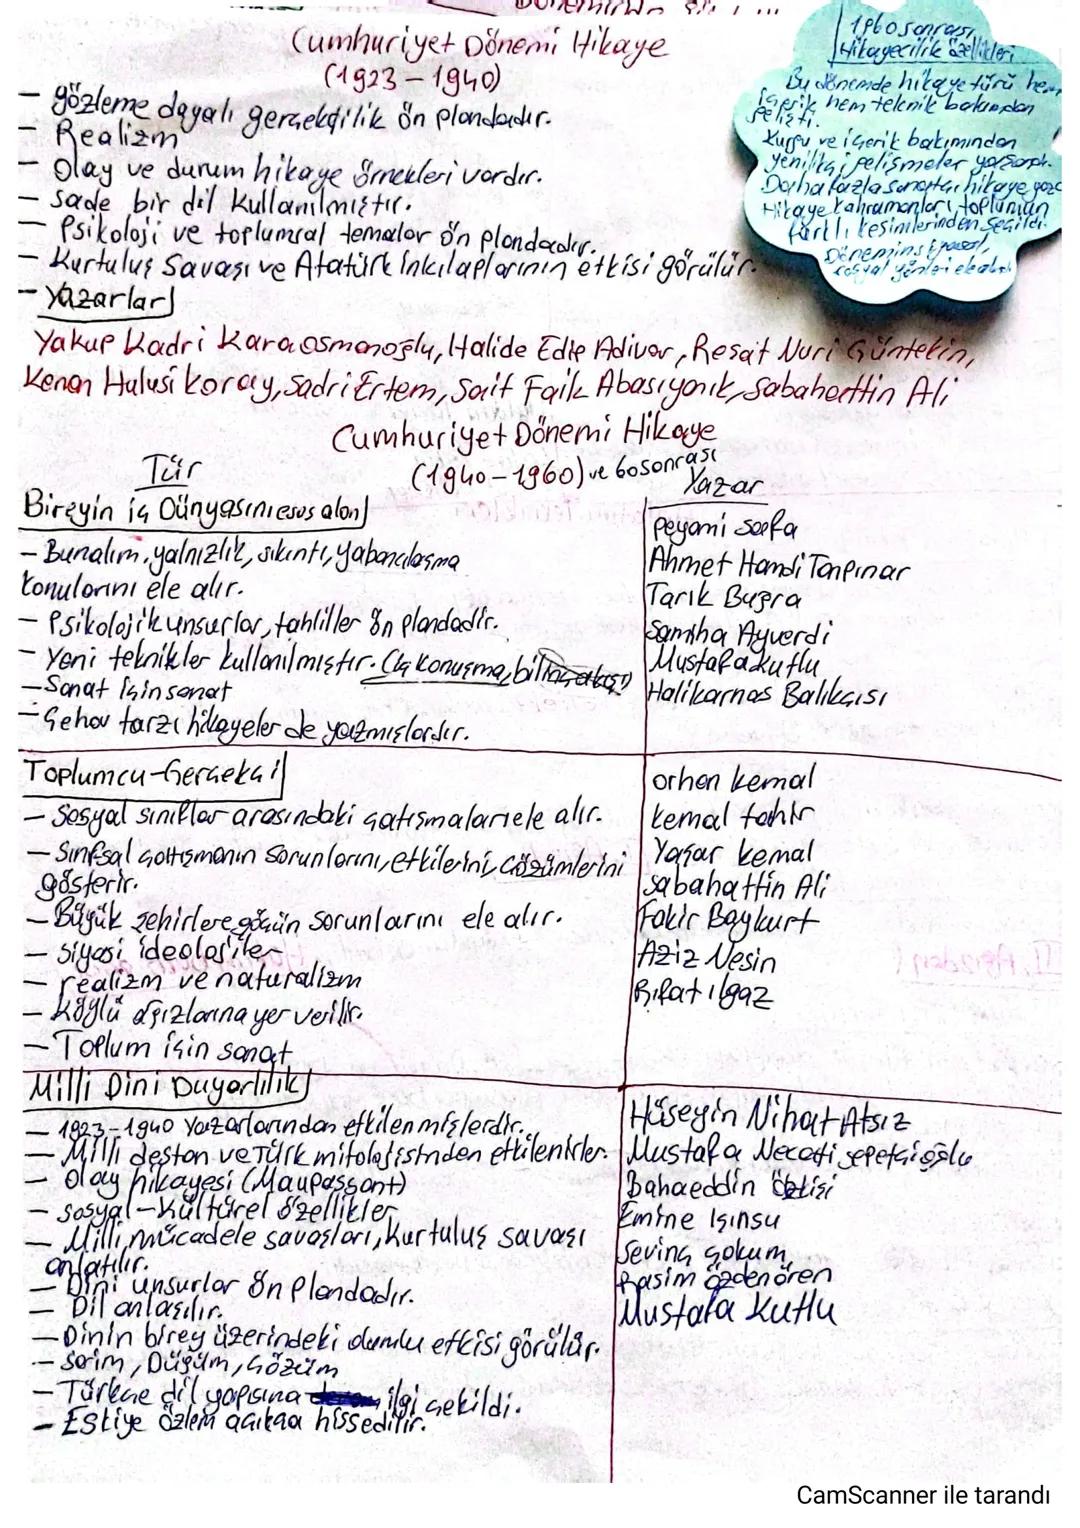 Cumhuriyet Dönemi Hikaye
(1923-1940)
- gözleme dayalı gerçekçilik ön plandadır.
- Realizm
- Olay ve durum hikaye örnekleri vardır.
- Sade bir dil kullanılmıştır.
- Psikoloji ve toplumsal temalar ön plandadır.
- Kurtuluş Savaşı ve Atatürk inkılaplarının etkisi görülür.
- Yazarlar
Yakup Kadri Karaosmanoğlu, Halide Edip Adıvar, Reşat Nuri Güntekin,
Kenan Hulusi Koray, Sadri Ertem, Sait Faik Abasıyanık, Sabahattin Ali
1960 sonrası
Hikayecilik özellikleri
Bu dönemde hikaye türü hem
içerik hem teknik bakımdan
gelişti.
Kurgu ve içerik bakımından
yenilikçi gelişmeler
Daha fazla sanatçı hikaye
Hikaye kahramanları, toplumun
farklı kesimlerinden seçilir.
Dönemin siyasi,
sosyal yönleri ele alındı
Cumhuriyet Dönemi Hikaye
(1940-1960) ve 60 sonrası
Tür
Yazar
Bireyin iç Dünyasını esas alan
- Bunalım, yalnızlık, sıkıntı, yabancılaşma
konularını ele alır.
- Psikolojik unsurlar, tahliller ön plandadır.
- Yeni teknikler kullanılmıştır. (İç konuşma, bilinç akışı)
- Sanat için sanat
- Çehov tarzı hikayeler de yazmışlardır.
Peyami Safa
Ahmet Hamdi Tanpınar
Tarık Buğra
Samiha Ayverdi
Mustafa Kutlu
Halikarnas Balıkçısı
Toplumcu-Gerçekçi
- Sosyal sınıflar arasındaki çatışmaları ele alır.
- Sınıfsal çatışmanın sorunlarını, etkilerini, çözümlerini
gösterir.
- Büyük şehirlere göçün sorunlarını ele alır.
- Siyasi ideolojiler
- realizm ve naturalizm
- Köylü ağızlarına yer verilir.
- Toplum için sanat
orhan kemal
kemal tahir
Yaşar kemal
Sabahattin Ali
Fakir Baykurt
Aziz Nesin
Rıfat ılgaz
Milli Dini Duyarlılık
- 1923-1940 Yazarlarından etkilenmişlerdir.
- Milli destan ve Türk mitolojisinden etkilenirler.
- Olay hikayesi (Maupassant)
- Sosyal-Kültürel özellikler
- Milli, mücadele savaşları, Kurtuluş savaşı
anlatılır.
- Dini unsurlar ön plandadır.
- Dil anlaşılır.
- Dinin birey üzerindeki olumlu etkisi görülür.
- Serim, Düğüm, Çözüm
- Türkçe dil yapısına ilgi çekildi.
- Eskiye özlem açıkça hissedilir.
Hüseyin Nihat Atsız
Mustafa Necati Sepetçioğlu
Bahaeddin özkişi
Emine Işınsu
Sevinç çokum
Rasim özdenören
Mustafa Kutlu
CamScanner ile tarandı